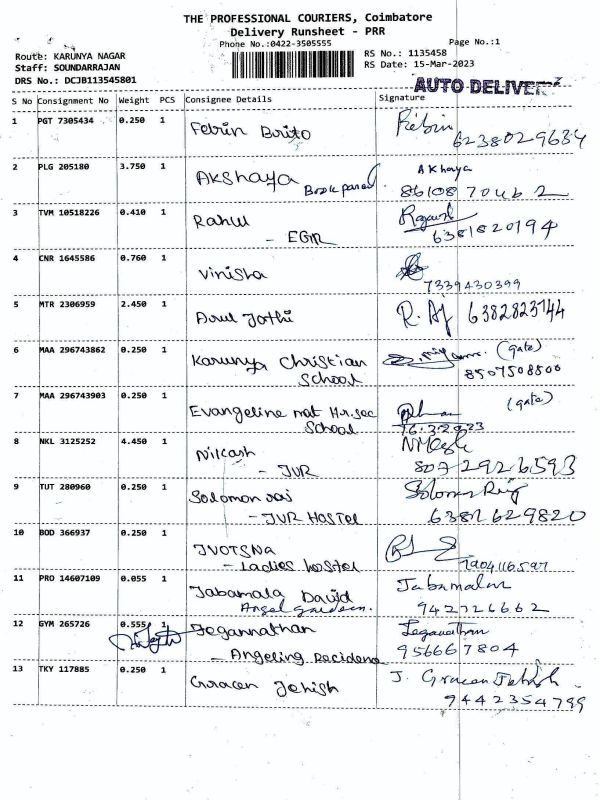 THE PROFESSIONAL COURIERS, Coimbatore
Delivery Runsheet - PRR
Phone No.:0422-3505555
Page No.:1
Route: KARUNYA NAGAR
Staff: SOUNDARRAJAN
DRS No.: DCJB113545801
RS No.: 1135458
RS Date: 15-Mar-2023
AUTO DELIVERY
S No Consignment No Weight PCS Consignee Details Signature
1 PGT 7305434 0.250 1 Febrin Brito
6238029634
2 PLG 205180 3.750 1 AKshaya Akhaya
Book parcel
3 TVM 10518226 0.410 1 Rahul
- EGR 6381820194
4 CNR 1645586 0.760 1 Vinisha
7339430399
5 MTR 2306959 2.450 1 Arul Jothi R. Aj 6382823744
6 MAA 296743862 0.250 1 Karunya Christian (gate)
School 8507508500
7 MAA 296743903 0.250 1 Evangeline mat Hr.sec (gate)
School 16.3.2023
8 NKL 3125252 4.450 1 Nilkash
- JVR 807 2926593
9 TUT 280960 0.250 1 Solomon raj Solomon Raj
- JVR Hostel 6381629820
10 BOD 366937 0.250 1 JYOTSNA
- Ladies hostel
11 PRO 14607109 0.055 1 Jabamala David Jabamalar
Angel garden. 942726662
12 GYM 265726 0.555 1 Jegannathan Jeganathan
- Angeling Recidence 956667804
13 TKY 117885 0.250 1 Gracen Jehish J. Gracen Jehish
9442354799